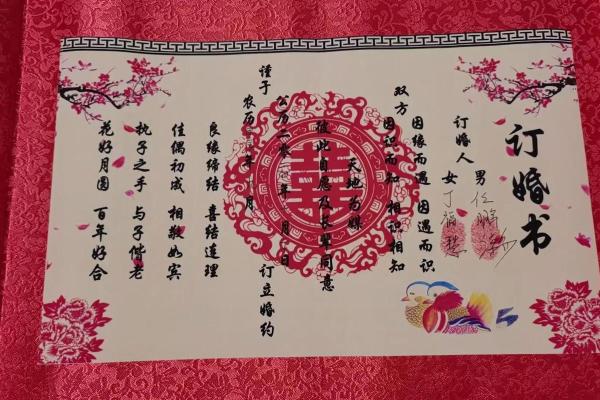 订婚书
订婚人
男 任鹏
女 丁
双方
因缘而遇 因遇而识
因识而知 相识相知
天地为媒
彼此自愿及长辈同意
谨于
公历二零 年 月 日
农历 年 月
订立婚约
良缘缔结 喜结连理
佳偶初成 相敬如宾
执子之手 与子偕老
花好月圆 百年好合